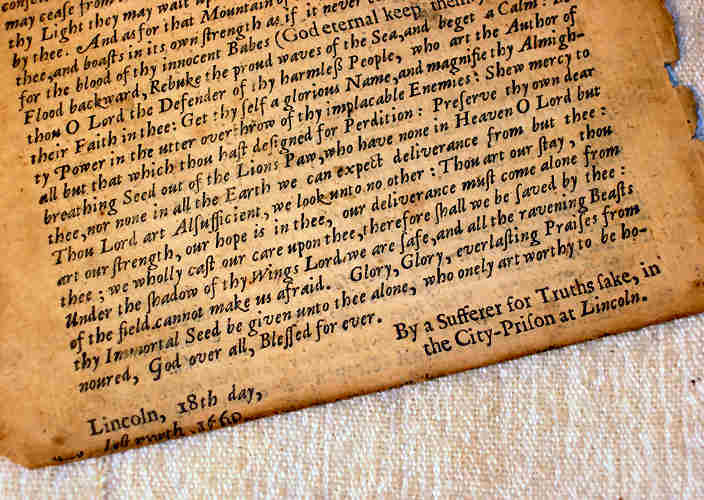 may ceaſe from
thy Light they may wait
by thee. And as for that Mountain of
thee,and boaſts in its own ſtrength as if it never
for the blood of thy innocent Babes (God eternal keep them
Flood backward, Rebuke the proud waves of the Sea,and beget a Calm:
thou O Lord the Defender of thy harmleſs People, who art the Author of
their Faith in thee: Get thy ſelf a glorious Name,and magnifie thy Almigh-
ty Power in the utter overthrow of thy implacable Enemies: Shew mercy to
all but that which thou haſt deſigned for Perdition: Preſerve thy own dear
breathing Seed out of the Lions Paw,who have none in Heaven O Lord but
thee,nor none in all the Earth we can expect deliverance from but thee:
Thou Lord art Alſufficient, we look unto no other: Thou art our ſtay, thou
art our ſtrength, our hope is in thee, our deliverance muſt come alone from
thee; we wholly caſt our care upon thee,therefore ſhall we be ſaved by thee:
Under the ſhadow of thy Wings Lord we are ſafe,and all the ravening Beaſts
of the field cannot make us afraid. Glory, Glory, everlaſting Praiſes from
thy Immortal Seed be given unto thee alone, who onely art worthy to be ho-
noured, God over all, Bleſſed for ever.
By a Sufferer for Truths ſake, in
the City-Priſon at Lincoln.
Lincoln, 18th day,
laſt month, 1660